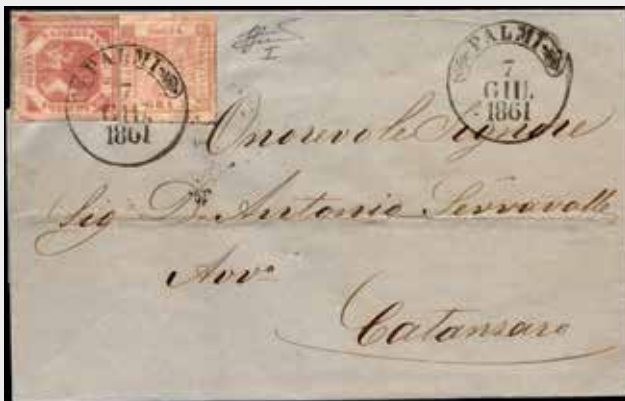 PALMI
7
GIU.
1861
PALMI
7
GIU.
1861
I
Onorevole Signore
Sig.r D. Antonio Serravalle
Avv.o
Catanzaro